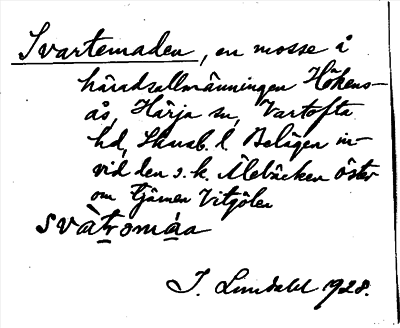 Svartemaden, en mosse å
häradsallmänningen Hökens-
ås, Härja sn, Vartofta
hd, Skarab. l. Belägen in-
vid den s.k. Ålebäcken öster
om tjärnen Vitgölen
svàtromáa
J. Lundahl 1928.